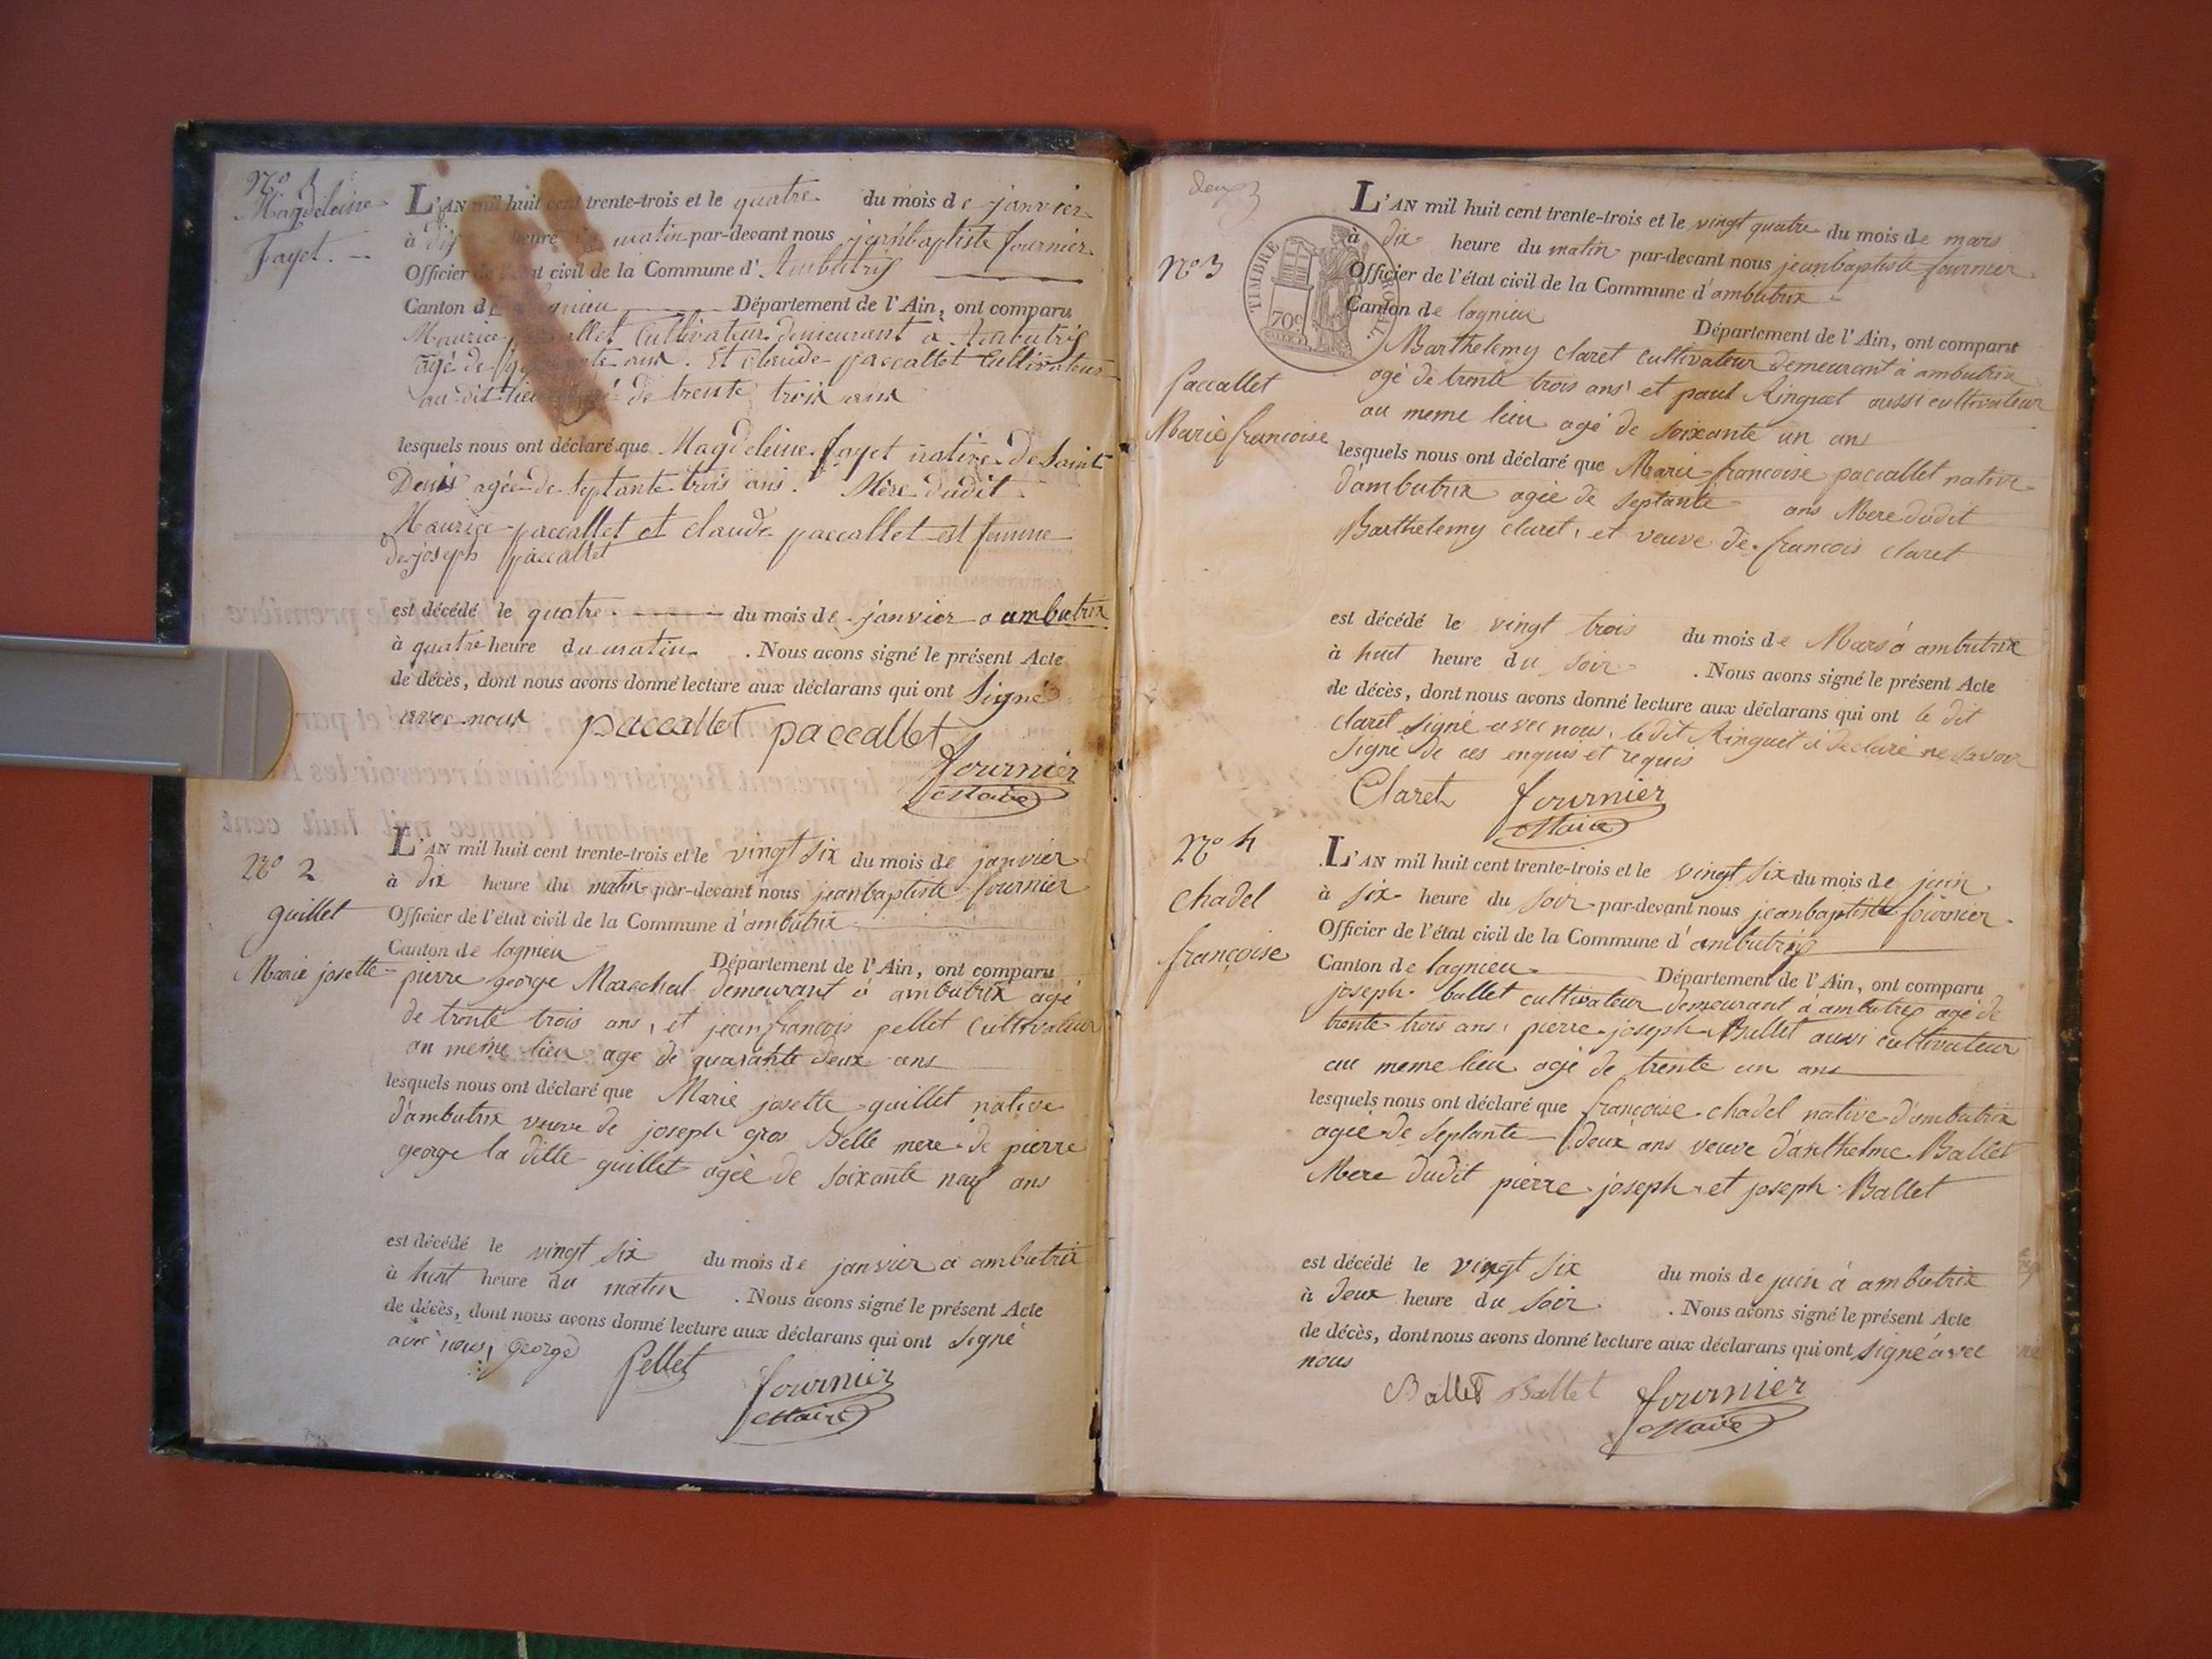 N.o 1
Magdeleine
Fayet. --
L'AN mil huit cent trente-trois et le quatre du mois de janvier
à dix heure du matin par-devant nous jeanbaptiste fournier
Officier de l'état civil de la Commune d'Ambutrix
Canton de lagnieu Département de l'Ain, ont comparu
Maurice paccallet Cultivateur demeurant à Ambutrix
agé de ans. Et claude paccallet Cultivateur
au dit lieu agé de trente trois ans
lesquels nous ont déclaré que Magdeleine fayet native de Saint
Denis agée de Septante trois ans. Mère dudit
Maurice paccallet et claude paccallet est femme
de joseph paccallet
est décédé le quatre du mois de janvier a ambutrix
à quatre heure du matin . Nous avons signé le présent Acte
de décès, dont nous avons donné lecture aux déclarans qui ont Signé
avec nous paccallet paccallet
fournier
Maire
N.o 2
guillet
Marie josette
L'AN mil huit cent trente-trois et le vingt six du mois de janvier
à dix heure du matin par-devant nous jeanbaptiste fournier
Officier de l'état civil de la Commune d'ambutrix
Canton de lagnieu Département de l'Ain, ont comparu
pierre george Marechal demeurant à ambutrix agé
de trente trois ans, et jeanfrancois pellet Cultivateur
au meme lieu age de quarante deux ans
lesquels nous ont déclaré que Marie josette guillet native
d'ambutrix veuve de joseph gros Belle mere de pierre
george la ditte guillet agée de soixante nauf ans
est décédé le vingt six du mois de janvier a ambutrix
à huit heure du matin . Nous avons signé le présent Acte
de décès, dont nous avons donné lecture aux déclarans qui ont signé
avec nous, george Pellet
fournier
Maire
deux
TIMBRE ROYAL.
70c
N.o 3
Paccallet
Marie francoise
L'AN mil huit cent trente-trois et le vingt quatre du mois de mars
à dix heure du matin par-devant nous jeanbaptiste fournier
Officier de l'état civil de la Commune d'ambutrix
Canton de lagnieu Département de l'Ain, ont comparu
Barthelemy claret cultivateur demeurant à ambutrix
agé de trente trois ans et paul Ringuet aussi cultivateur
au meme lieu agé de soixante un ans
lesquels nous ont déclaré que Marie francoise paccallet native
d'ambutrix agée de septante ans Mere dudit
Barthelemy claret, et veuve de francois claret
est décédé le vingt trois du mois de Mars à ambutrix
à huit heure du soir . Nous avons signé le présent Acte
de décès, dont nous avons donné lecture aux déclarans qui ont le dit
claret signé avec nous, ledit Ringuet à declaré ne savoir
signé de ces enquis et requis
Claret fournier
Maire
N.o 4
chadel
françoise
L'AN mil huit cent trente-trois et le vingt six du mois de juin
à six heure du soir par-devant nous jeanbaptiste fournier
Officier de l'état civil de la Commune d'ambutrix
Canton de lagnieu Département de l'Ain, ont comparu
joseph ballet cultivateur demeurant à ambutrix agé de
trente trois ans, pierre joseph Ballet aussi cultivateur
au meme lieu agé de trente un ans
lesquels nous ont déclaré que françoise chadel native d'ambutrix
agée de septante deux ans veuve d'anthelme Ballet
Mere dudit pierre joseph et joseph Ballet
est décédé le vingt six du mois de juin à ambutrix
à deux heure du soir . Nous avons signé le présent Acte
de décès, dont nous avons donné lecture aux déclarans qui ont signé avec
nous
Ballet Ballet fournier
Maire